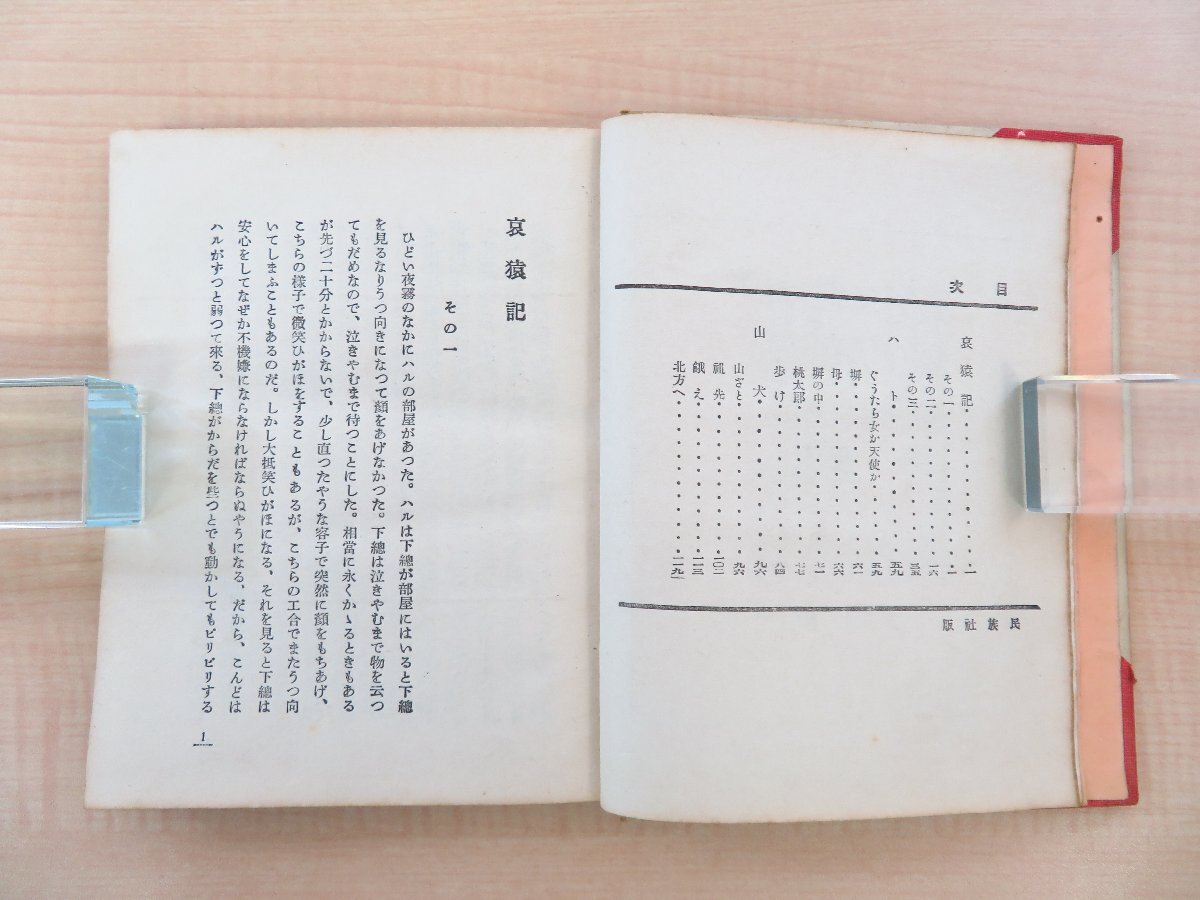 目次
哀猿記・・・・・・・・・・一
その一・・・・・・・・・・一
その二・・・・・・・・・・一六
その三・・・・・・・・・・三五
ハト・・・・・・・・・・五九
ぐうたら女か天使か・・・・・五九
塀・・・・・・・・・・六一
母・・・・・・・・・・六六
塀の中・・・・・・・・・・七一
桃太郎・・・・・・・・・・七七
歩け・・・・・・・・・・八四
山犬・・・・・・・・・・九六
山ざと・・・・・・・・・・九六
祖先・・・・・・・・・・一〇二
餓え・・・・・・・・・・一一三
北方へ・・・・・・・・・・一二九
民族社版
哀猿記
その一
ひどい夜霧のなかにハルの部屋があつた。ハルは下總が部屋にはいると下總
を見るなりうつ向きになつて顏をあげなかつた。下總は泣きやむまで物を云つ
てもだめなので、泣きやむまで待つことにした。相當に永くかゝるときもある
が先づ二十分とかからないで、少し直つたやうな容子で突然に顏をもちあげ、
こちらの様子で微笑ひがほをすることもあるが、こちらの工合でまたうつ向
いてしまふこともあるのだ。しかし大抵笑ひがほになる、それを見ると下總は
安心をしてなぜか不機嫌にならなければならぬやうになる、だから、こんどは
ハルがずつと弱つて來る、下總がからだを些つとでも動かしてもビリビリする
1